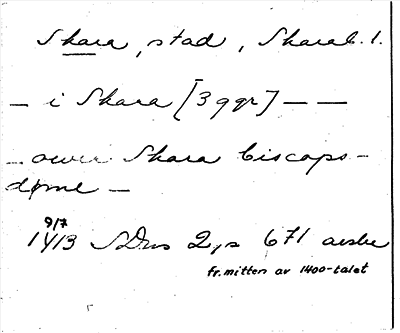 Skara, stad, Skarab. l.
— i Skara [3 ggr] — —
— ower Skara biscops-
døme —
9/7
1413 SDns 2, s 671 avskr
fr. mitten av 1400-talet